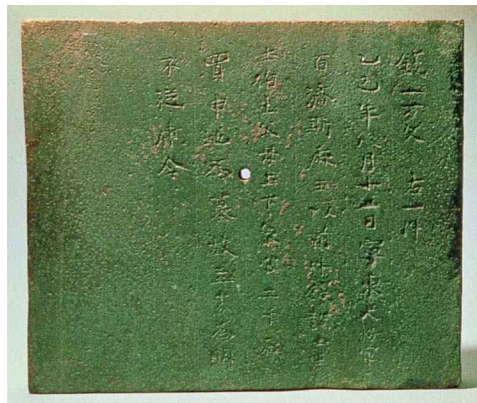 錢一万文 右一件
乙巳年八月十二日寧東大將軍
百濟斯麻王以前件錢土王
土伯土父母上下衆官二千石
買申地爲墓故立券爲明
不從律令